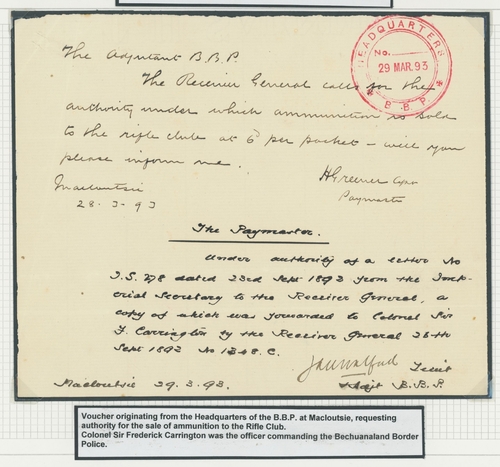 The Adjutant B.B.P.
HEADQUARTERS
No.
29 MAR. 93
* B.B.P. *
The Receiver General calls for the
authority under which ammunition is sold
to the rifle club at 6d per packet – will you
please inform me.
HGreener Capt
Paymaster
Macloutsie
28-3-93
The Paymaster.
Under authority of a letter No
dated 23rd Sept 1892 from the Imp-
erial Secretary to the Receiver General, a
copy of which was forwarded to Colonel Sir
F. Carrington by the Receiver General 28th
Sept 1892 No 1348.C.
Lieut
Adjt B.B.P.
Macloutsie 29.3.93.
Voucher originating from the Headquarters of the B.B.P. at Macloutsie, requesting
authority for the sale of ammunition to the Rifle Club.
Colonel Sir Frederick Carrington was the officer commanding the Bechuanaland Border
Police.